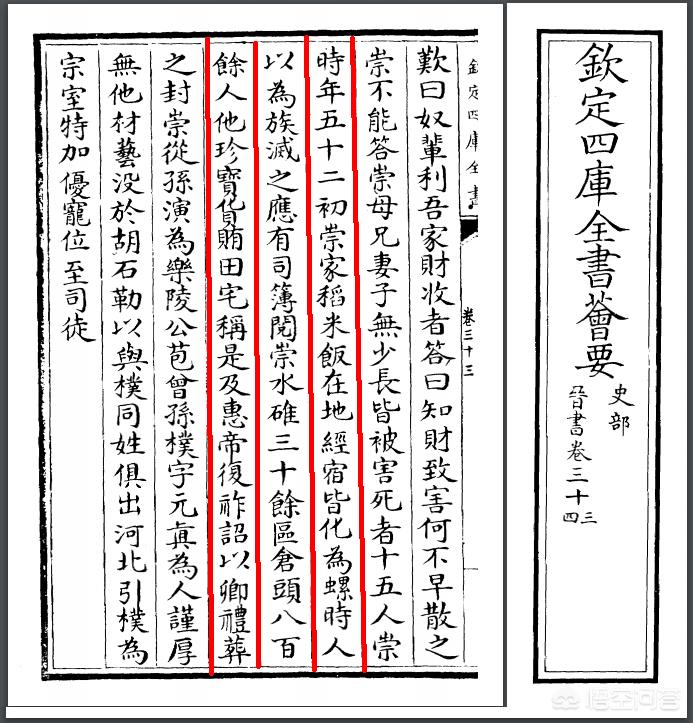 欽定四庫全書薈要
史部
晉書卷三十三四
欽定四庫全書
卷三十三
歎曰奴輩利吾家財收者答曰知財致害何不早散之
崇不能答崇母兄妻子無少長皆被害死者十五人崇
時年五十二初崇家稻米飯在地經宿皆化為螺時人
以為族滅之應有司簿閱崇水碓三十餘區倉頭八百
餘人他珍寶貨賄田宅稱是及惠帝復祚詔以卿禮葬
之封崇從孫演為樂陵公苞曾孫樸字元真為人謹厚
無他材藝没於胡石勒以與樸同姓俱出河北引樸為
宗室特加優寵位至司徒
悟空问答